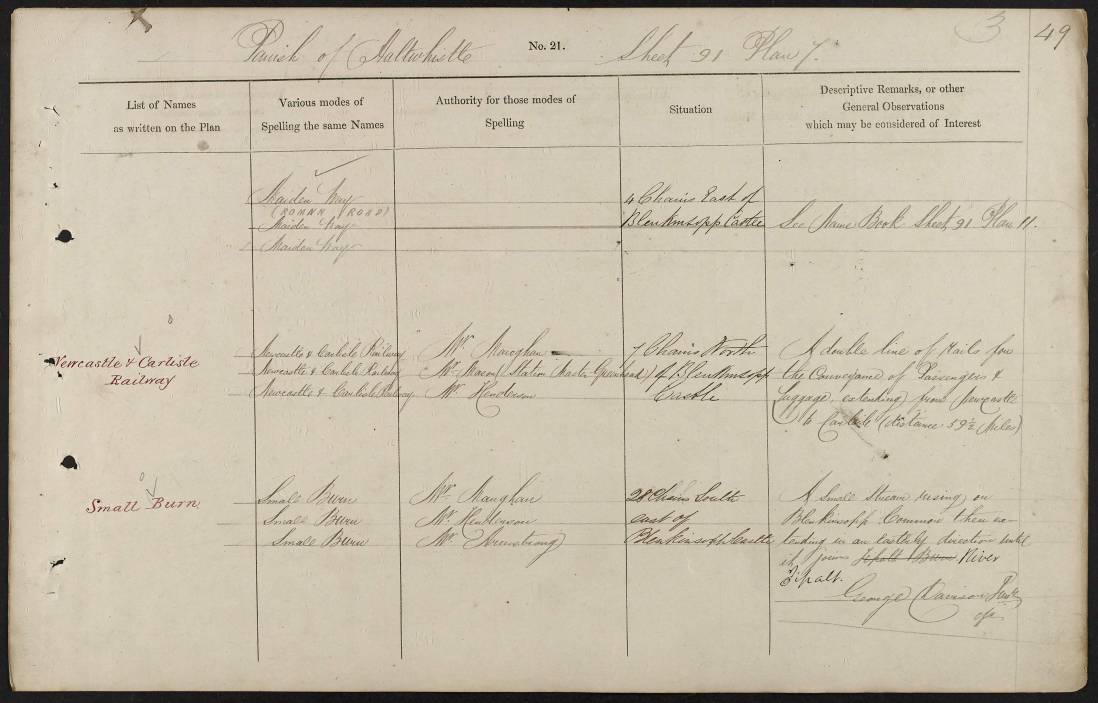 3
49
Parish of Haltwhistle No. 21. Sheet 91 Plan 7.
List of Names
as written on the Plan
Various modes of
Spelling the same Names
Authority for those modes of
Spelling
Situation
Descriptive Remarks, or other
General Observations
which may be considered of Interest
Maiden Way
(ROMAN ROAD)
Maiden Way
Maiden Way
4 Chains East of
Blenkinsopp Castle
See Name Book Sheet 91 Plan 11.
Newcastle & Carlisle
Railway
Newcastle & Carlisle Railway
Newcastle & Carlisle Railway
Newcastle & Carlisle Railway
Mr. Maughan
Mr. Mason (Station Master Greenhead)
Mr. Henderson
7 Chains North
of Blenkinsopp
Castle
A double line of Rails for
the Conveyance of Passengers &
Luggage, extending from Newcastle
to Carlisle (distance 59½ Miles)
Small Burn
Small Burn
Small Burn
Small Burn
Mr. Maughan
Mr. Henderson
Mr. Armstrong
28 Chains South
east of
Blenkinsopp Castle
A small Stream rising on
Blenkinsopp Common then ex-
tending in an easterly direction until
it joins Tipalt Burn River
Tipalt.
George